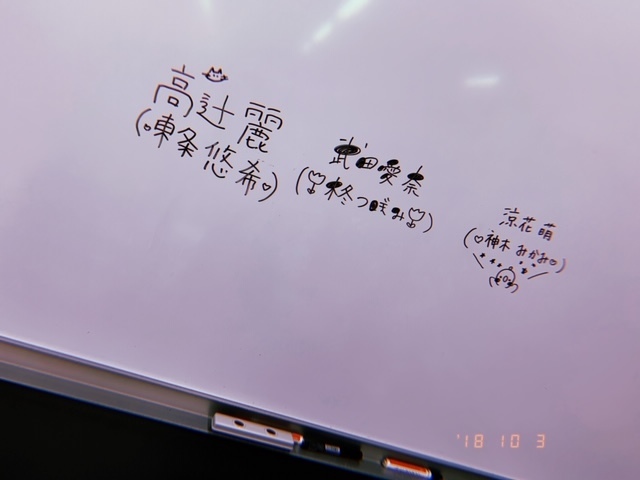 高辻麗
(東条悠希♡)
武田愛奈
(柊つぼみ)
涼花萌
(♡神木みかみ♡)
'18 10 3